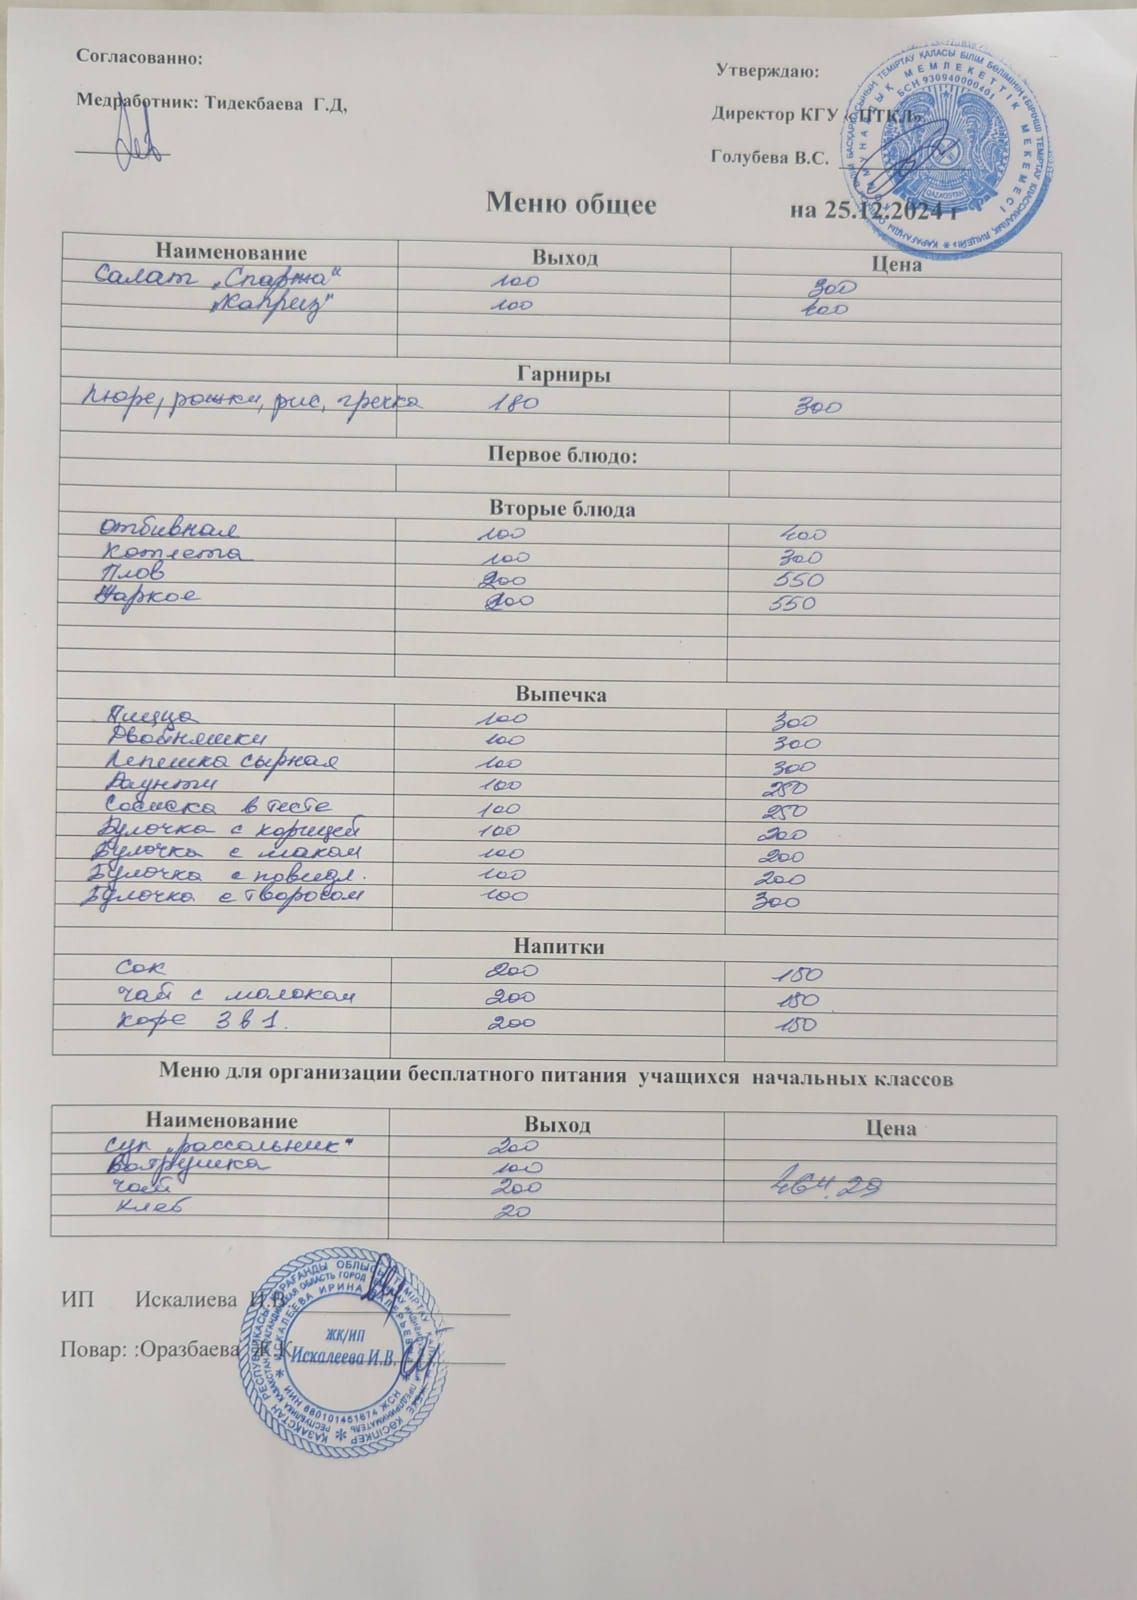 Согласованно:
Утверждаю:
Медработник: Тидекбаева Г.Д,
Директор КГУ «ПТКЛ»
Голубева В.С.
Меню общее на 25.12.2024 г
Наименование Выход Цена
Салат „Спаржа“ 100 300
„Каприз” 100 400
Гарниры
Пюре, рожки, рис, гречка 180 300
Первое блюдо:
Вторые блюда
Отбивная 100 400
Котлета 100 300
Плов 200 550
Жаркое 200 550
Выпечка
Пицца 100 300
Двойняшки 100 300
Лепешка сырная 100 300
Баунти 100 250
Сосиска в тесте 100 250
Булочка с корицей 100 200
Булочка с маком 100 200
Булочка с повидл. 100 200
Булочка с творогом 100 300
Напитки
Сок 200 150
чай с молоком 200 150
кофе 3 в 1. 200 150
Меню для организации бесплатного питания учащихся начальных классов
Наименование Выход Цена
суп „рассольник“ 200
Ватрушка 100
чай 200 464.29
хлеб 20
ИП Искалиева И.В.
Повар: :Оразбаева Ж.К
ЖК/ИП
Искалеева И.В.